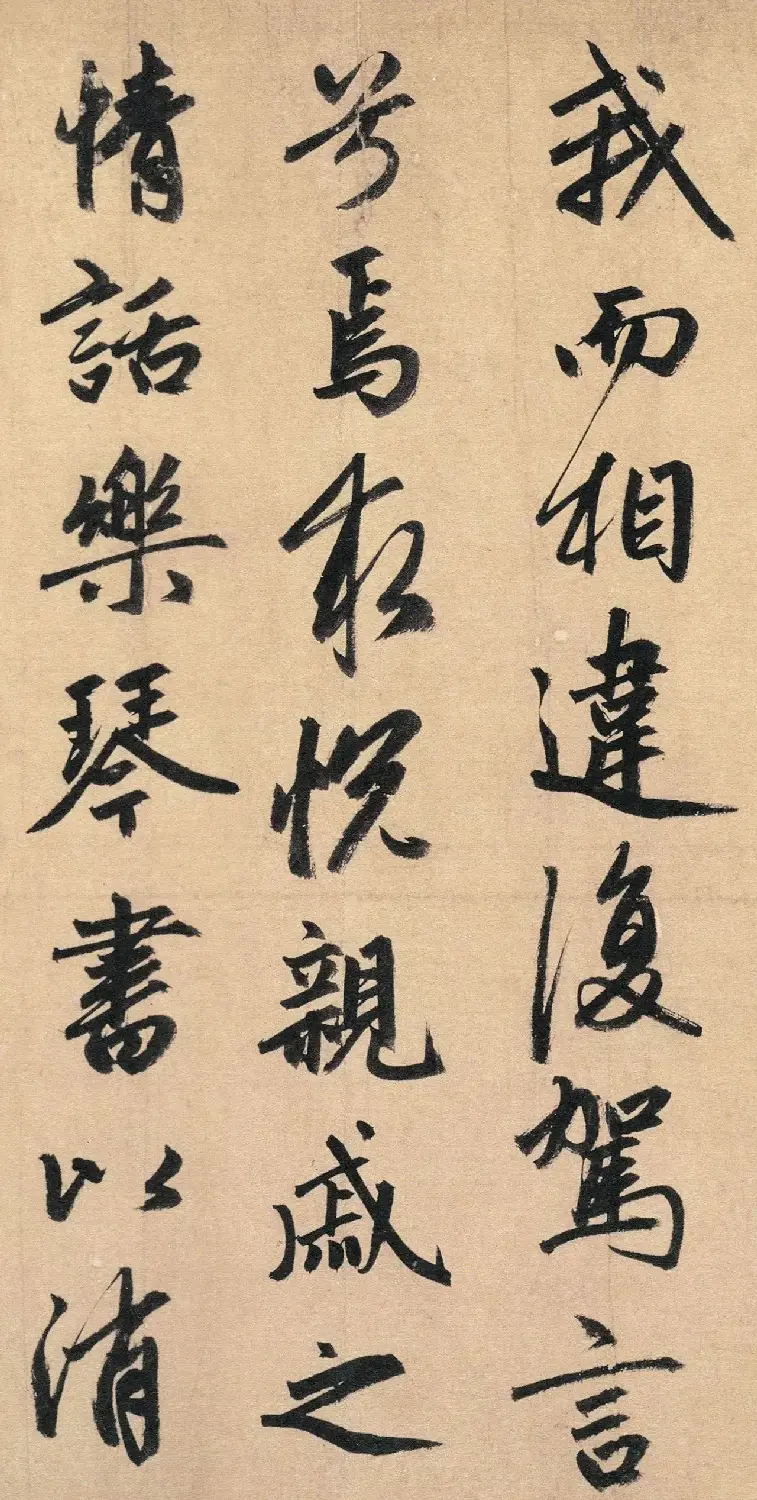 我而相違復駕言
兮焉求悅親戚之
情話樂琴書以消